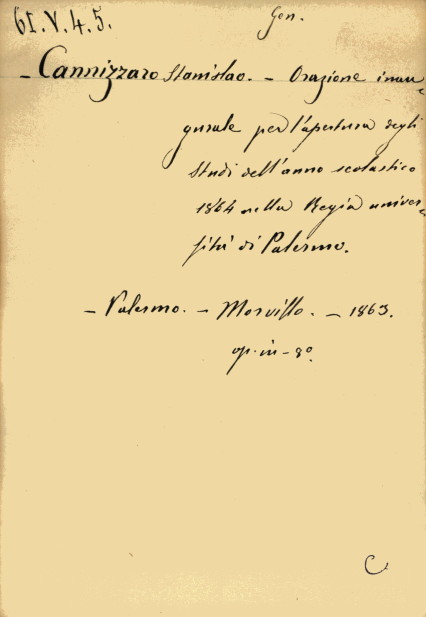 61.V.4.5.
Gen.
- Cannizzaro Stanislao. - Orazione inau-
gurale per l'apertura degli
studi dell'anno scolastico
1864 nella Regia univer-
sità di Palermo.
- Palermo. - Morvillo. - 1863.
op. in-8º.
C